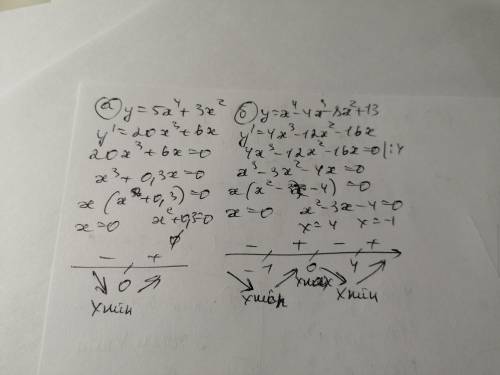 а) y = 5x⁴ + 3x²
y' = 20x³ + 6x
20x³ + 6x = 0
x³ + 0,3x = 0
x (x² + 0,3) = 0
x = 0 x² + 0,3 = 0
∅
− +
0
xmin
б) y = x⁴ - 4x³ - 8x² + 13
y' = 4x³ - 12x² - 16x
4x³ - 12x² - 16x = 0 |:4
x³ - 3x² - 4x = 0
x (x² - 3x - 4) = 0
x = 0 x² - 3x - 4 = 0
x = 4 x = -1
− + − +
-1 0 4
xmin xmax xmin